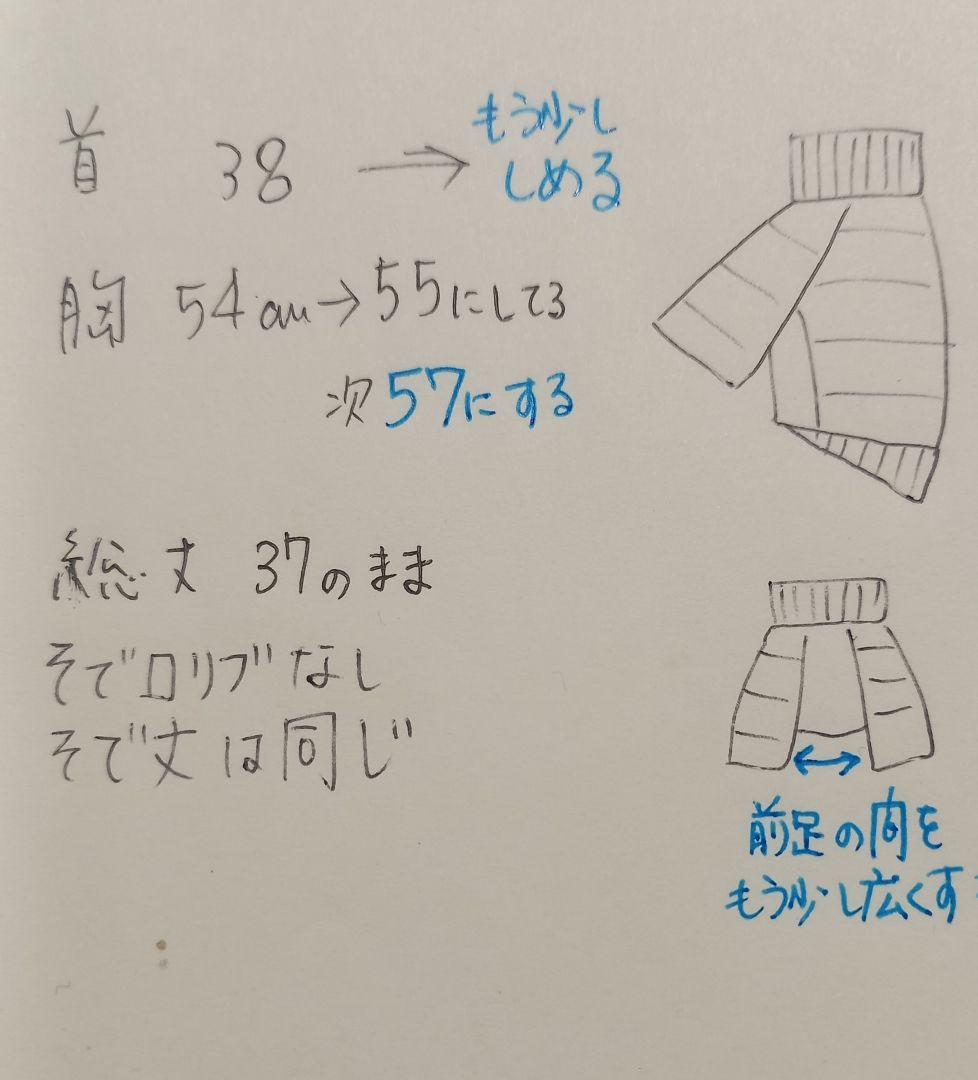 首 38 → もう少し
しめる
胸 54cm→55にしてる
次 57にする
総丈 37のまま
そで口リブなし
そで丈は同じ
前足の間を
もう少し広くす